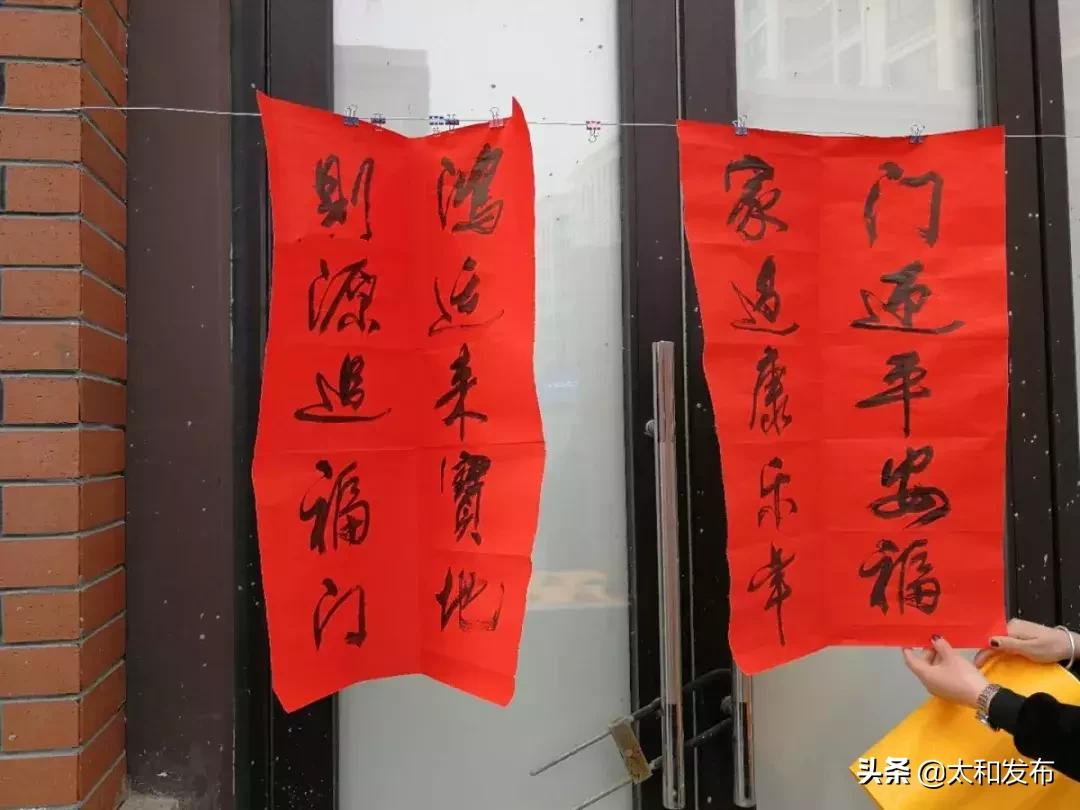 门迎平安福
家过康乐年
鸿运来寶地
财源進福门
头条 @太和发布